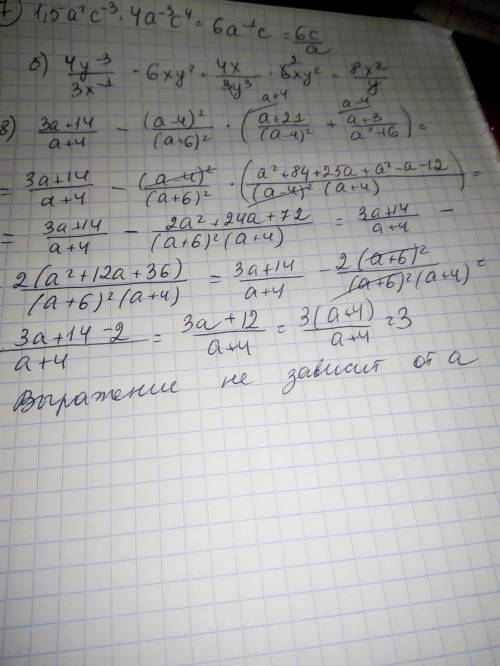 7) 1,5a²c⁻³ · 4a⁻³c⁴ = 6a⁻¹c = 6c/a
б) 4y⁻³/3x⁻¹ · 6xy² = 4x/3y³ · 6²xy² = 8x²/y
8) (3a+14)/(a+4) − (a−4)²/(a+6)² · ((a+21)/(a−4)² ᵃ⁺⁴ + (a+3)/(a²−16) ᵃ⁻⁴) =
= (3a+14)/(a+4) − (a−4)²/(a+6)² · ((a²+84+25a+a²−a−12)/((a−4)²·(a+4))) =
= (3a+14)/(a+4) − (2a²+24a+72)/((a+6)²(a+4)) = (3a+14)/(a+4) −
2(a²+12a+36)/((a+6)²(a+4)) = (3a+14)/(a+4) − 2(a+6)²/((a+6)²(a+4)) =
(3a+14−2)/(a+4) = (3a+12)/(a+4) = 3(a+4)/(a+4) = 3
Выражение не зависит от a